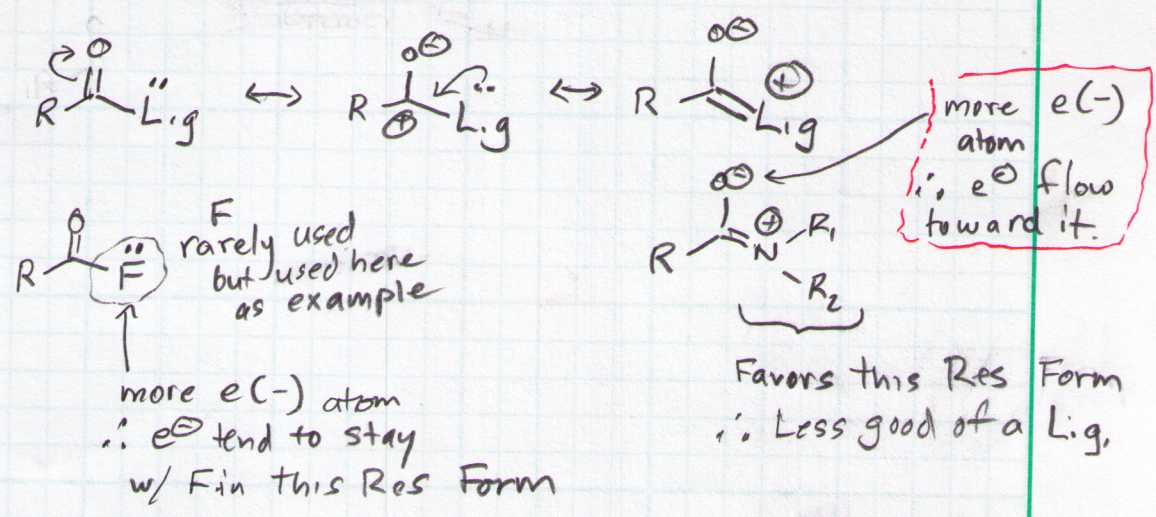 O O ⊖ O ⊖
R L.g ↔ R ⊕ L.g ↔ R L.g ⊕
more e(-)
atom
∴ e⊖ flow
toward it.
O
R F
F
rarely used
but used here
as example
O ⊖
R ⊕ N R₁
R₂
more e(-) atom
∴ e⊖ tend to stay
w/ F in this Res Form
Favors this Res Form
∴ Less good of a L.g.